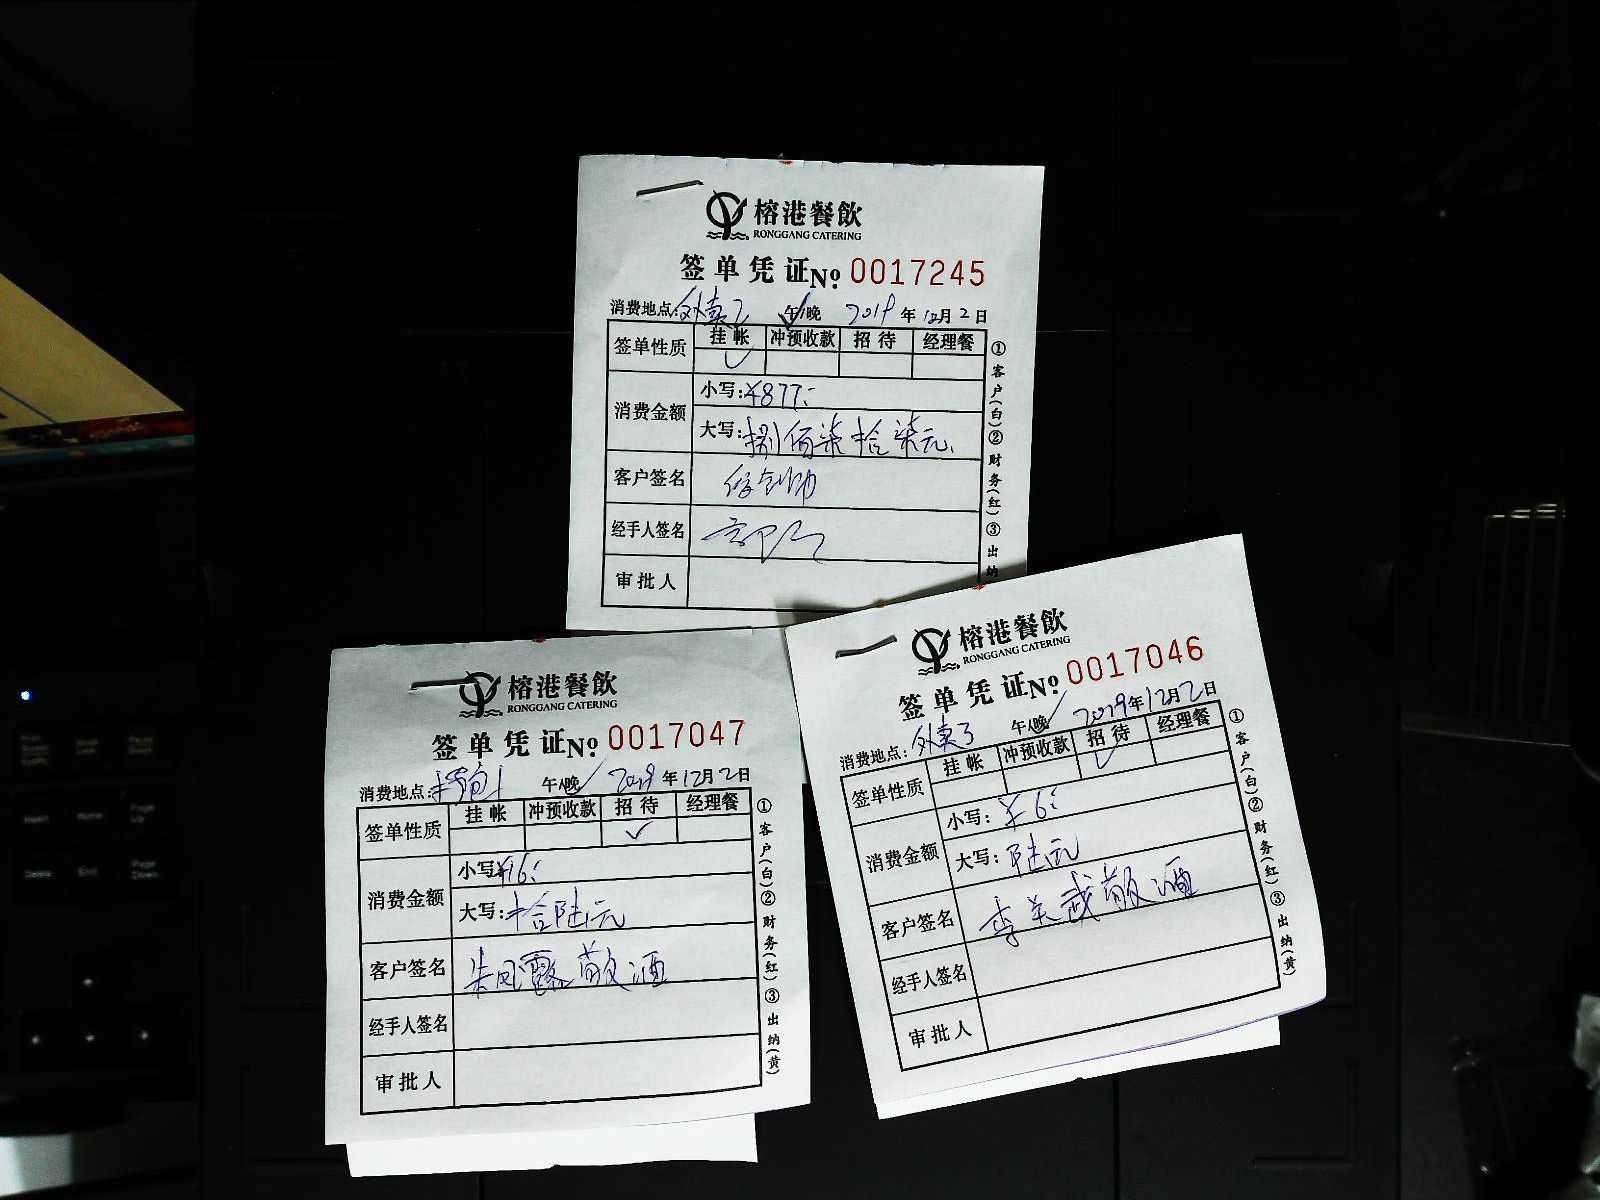 榕港餐飲
RONGGANG CATERING
签单凭证 № 0017245
消费地点: 外卖 午/晚 2019年12月2日
签单性质 挂帐 冲预收款 招待 经理餐
消费金额
小写:¥877:
大写:捌佰柒拾柒元
客户签名
经手人签名
审批人
①客户(白)②财务(红)③出纳
榕港餐飲
RONGGANG CATERING
签单凭证 № 0017047
消费地点: 午/晚 2019年12月2日
签单性质 挂帐 冲预收款 招待 经理餐
消费金额
小写:¥16:
大写:拾陆元
客户签名 朱凤露敬酒
经手人签名
审批人
①客户(白)②财务(红)③出纳(黄)
榕港餐飲
RONGGANG CATERING
签单凭证 № 0017046
消费地点: 外卖3 午/晚 2019年12月2日
签单性质 挂帐 冲预收款 招待 经理餐
消费金额
小写:¥6:
大写:陆元
客户签名 李美戓敬酒
经手人签名
审批人
①客户(白)②财务(红)③出纳(黄)